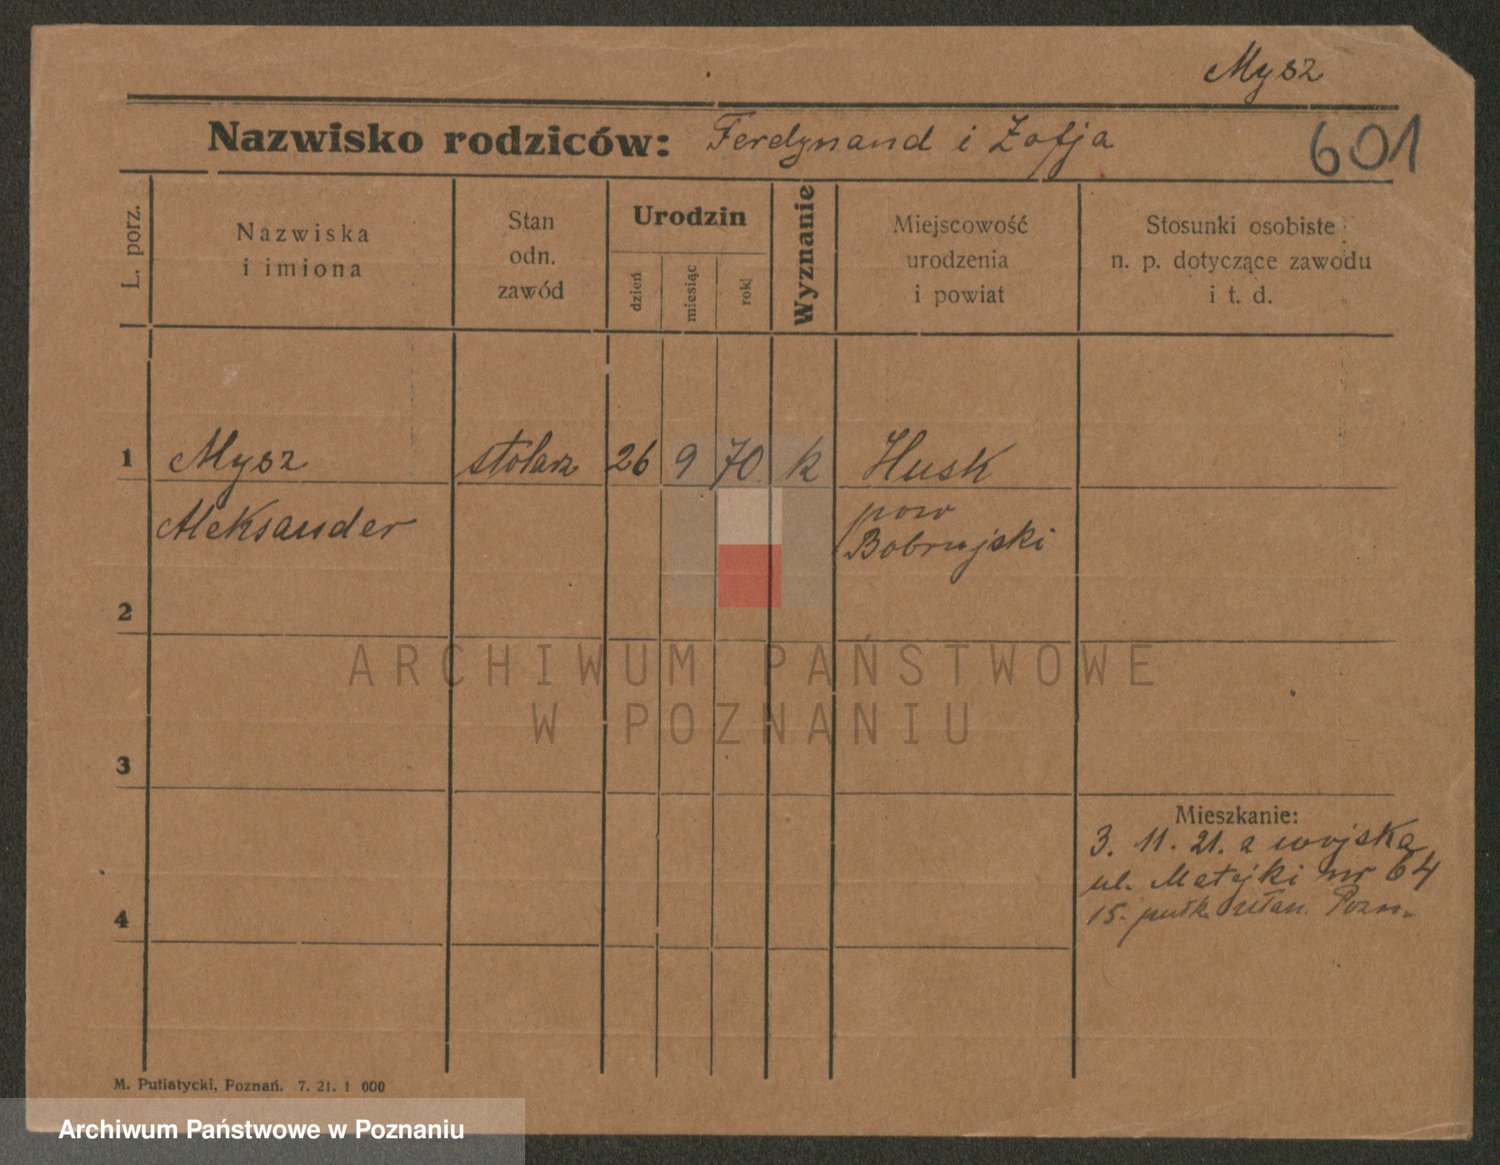 Mysz
Nazwisko rodziców: Ferdynand i Zofja
601
L. porz.
Nazwiska
i imiona
Stan
odn.
zawód
Urodzin
dzień
miesiąc
rok
Wyznanie
Miejscowość
urodzenia
i powiat
Stosunki osobiste
n. p. dotyczące zawodu
i t. d.
1 Mysz stolarz 26 9 70 k Husk
Aleksander pow
Bobrujski
2
3
4
Mieszkanie:
3. 11. 21. a wojska
ul. Matejki nr 64
15. pułk ułan. Pozn.
M. Putiatycki, Poznań. 7. 21. 1 000
ARCHIWUM PAŃSTWOWE
W POZNANIU
Archiwum Państwowe w Poznaniu